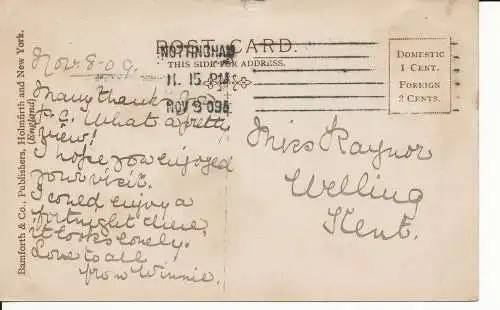 POST CARD.
THIS SIDE FOR ADDRESS.
NOTTINGHAM
11. 15 PM
NOV 9 09
DOMESTIC
1 CENT.
FOREIGN
2 CENTS.
Bamforth & Co., Publishers, Holmfirth and New York.
(England)
Nov. 8-09.
Many thanks for
p.c. What a pretty
view!
I hope you enjoyed
your visit.
I could enjoy a
fortnight there,
it looks lovely.
Love to all
from Winnie.
Miss Raynor
Welling
Kent.